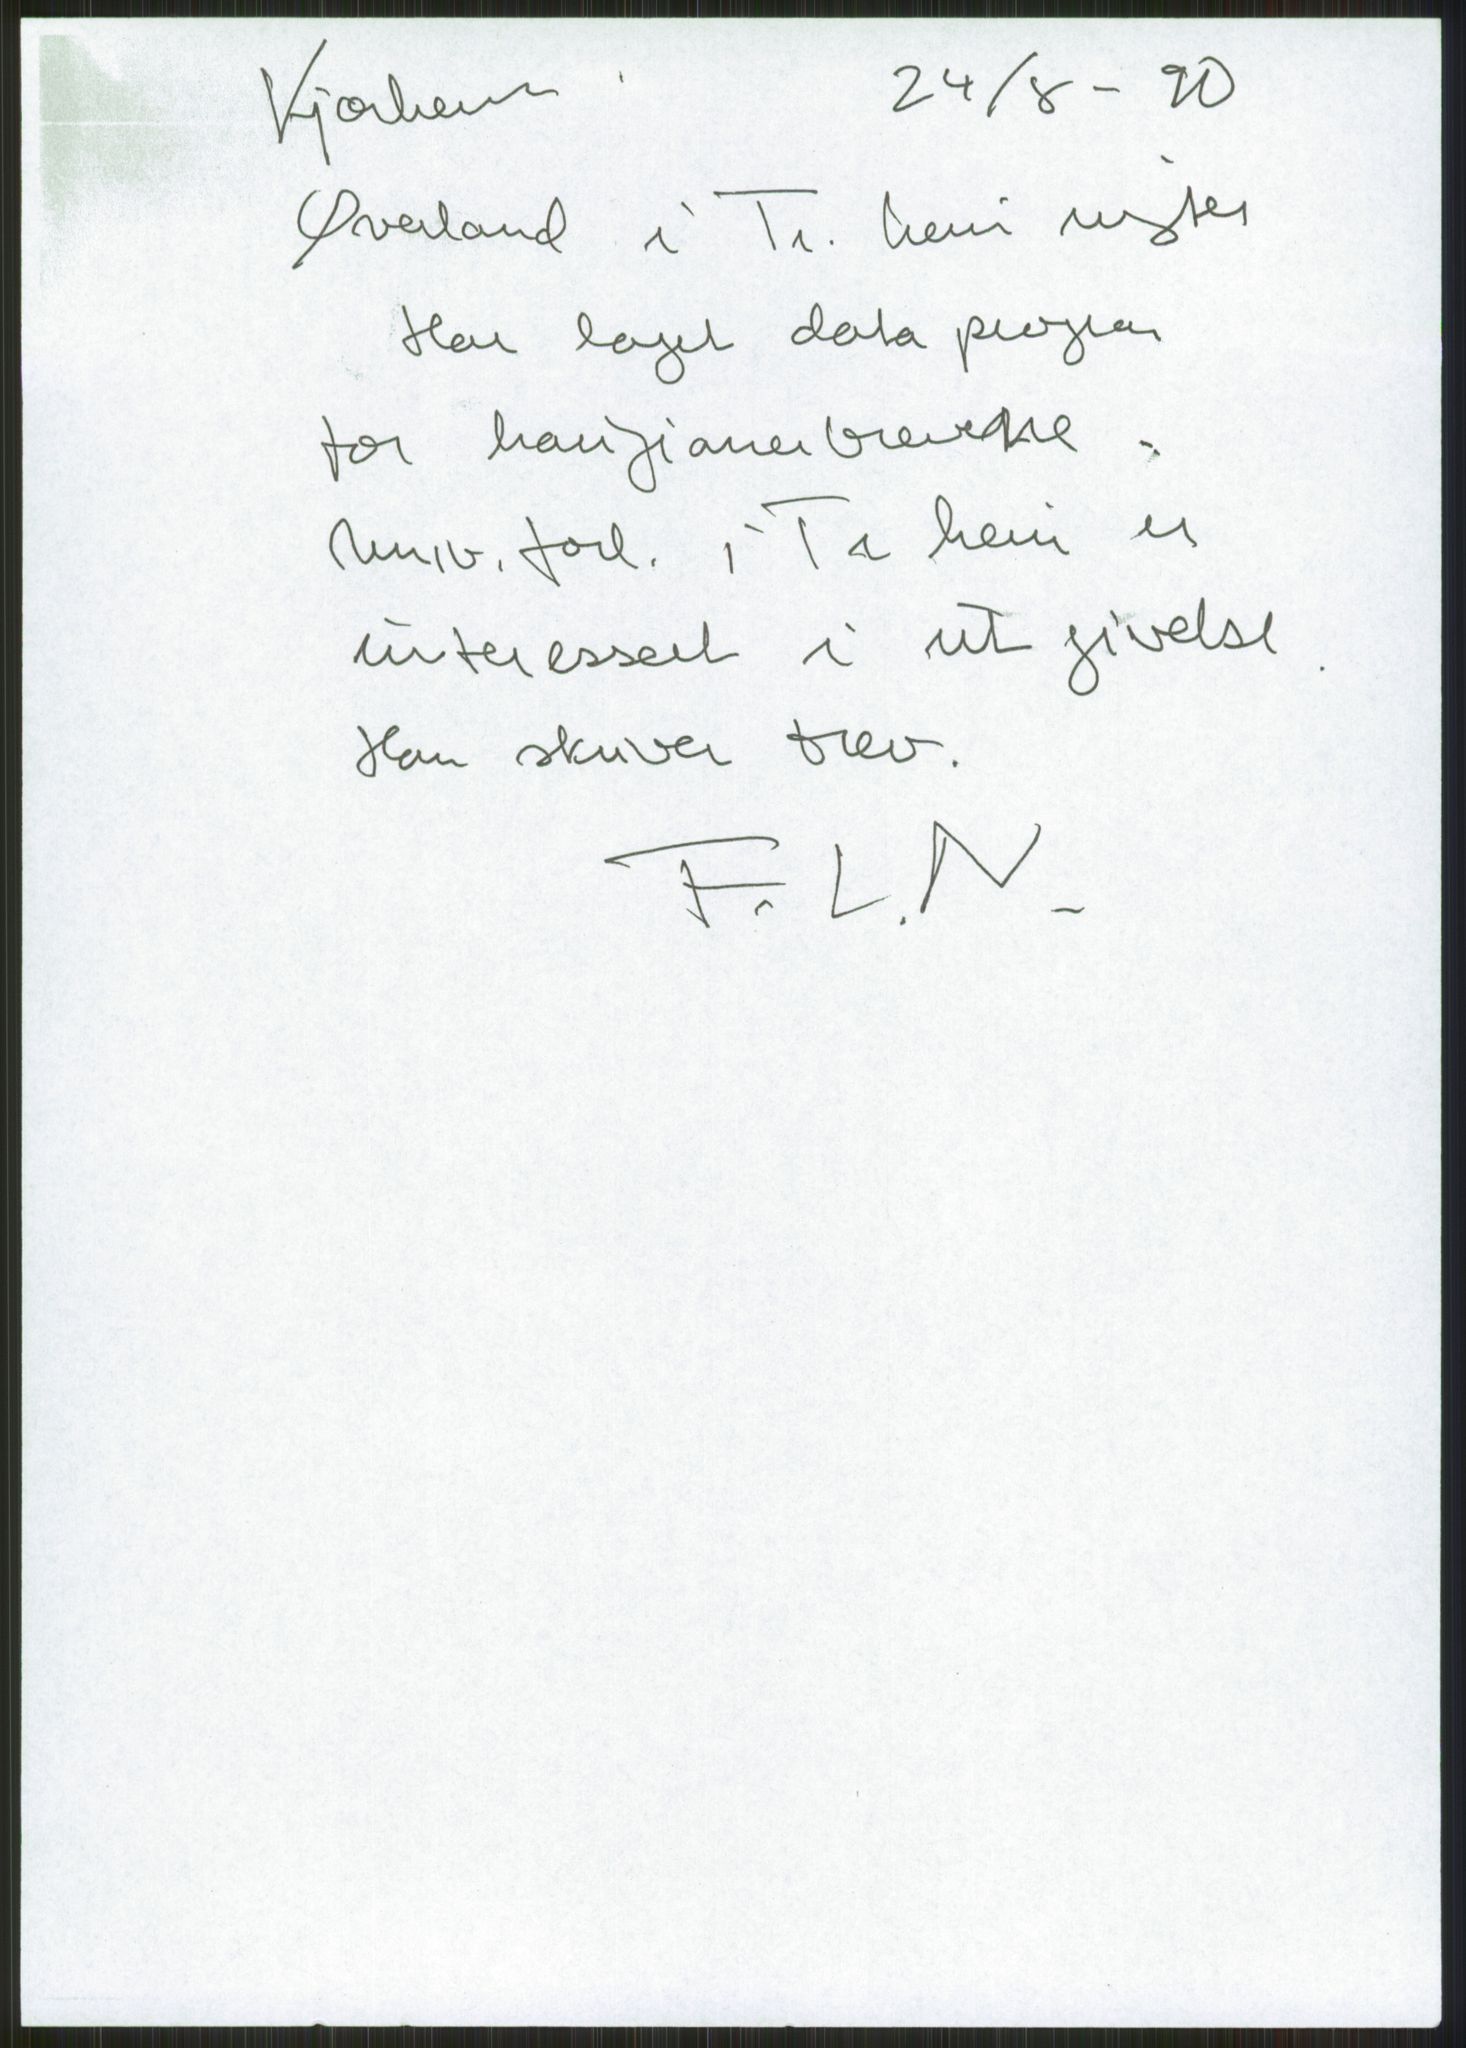 24/8-90
Øverland i Tr. heim
Har laget data program
for haugianerbrevene.
Univ. forl. i Tr heim er
interessert i utgivelse.
Han skriver brev.
F.L.N.-